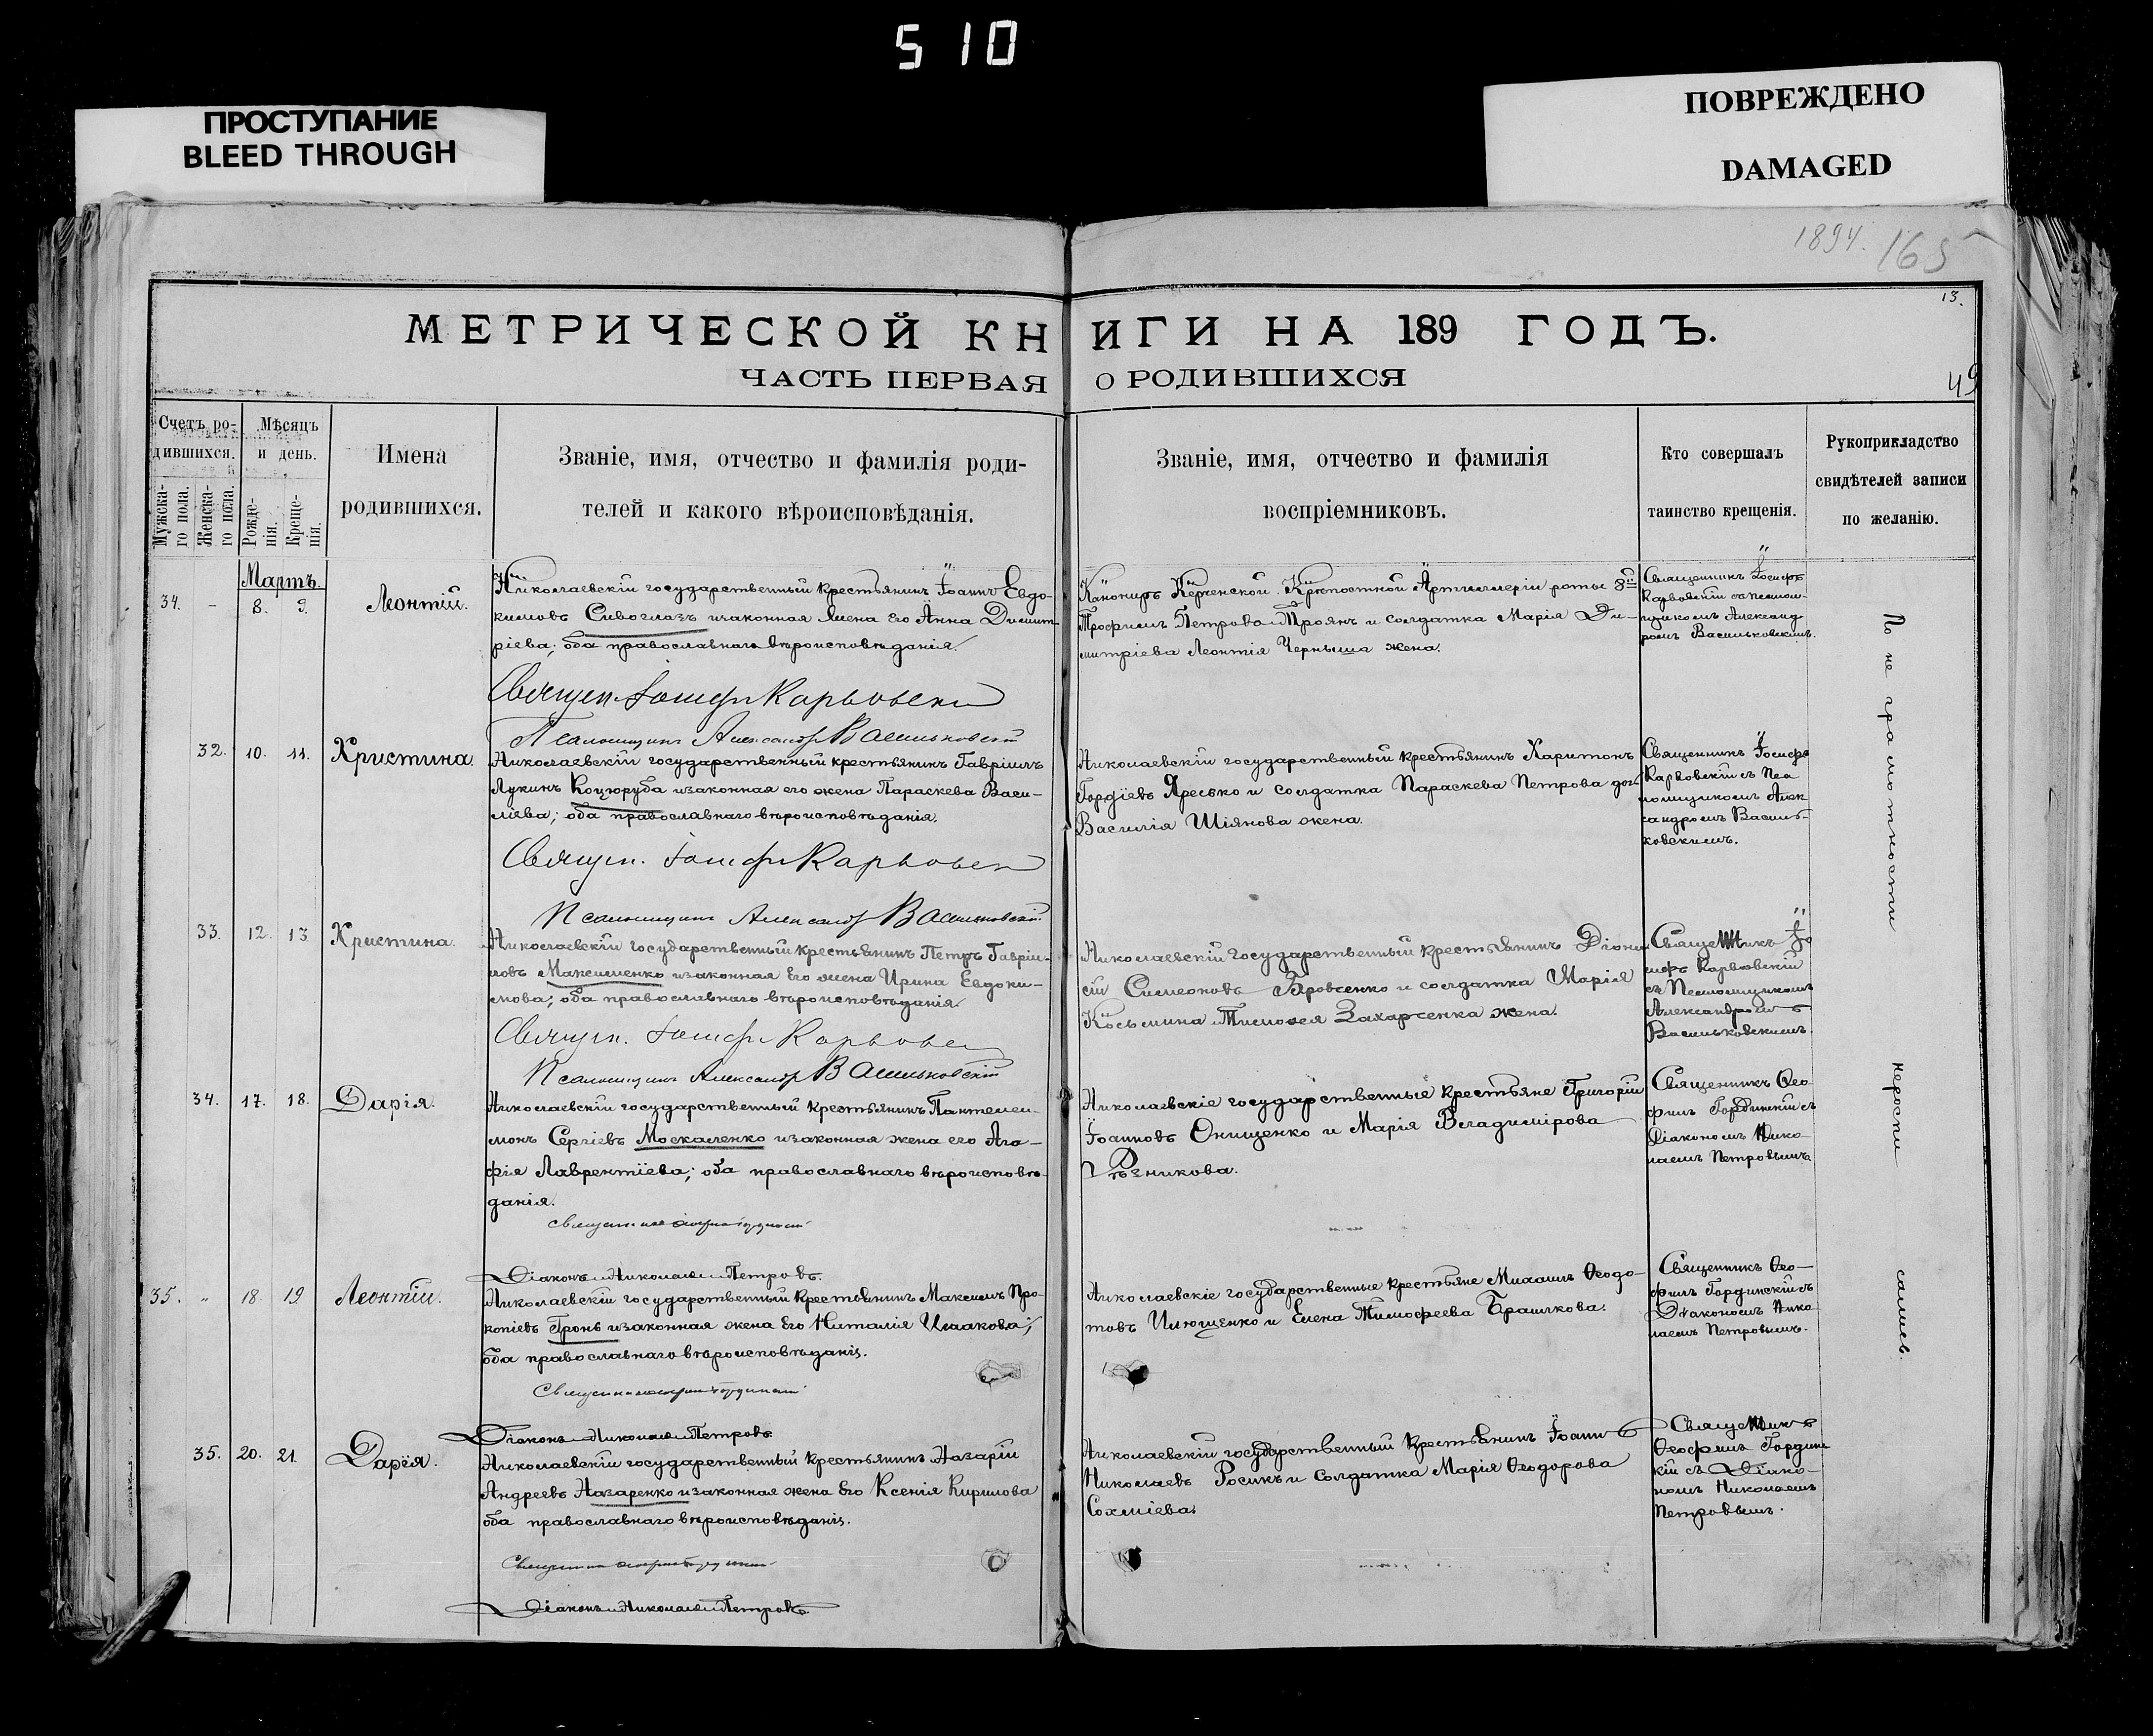 510
ПРОСТУПАНИЕ
BLEED THROUGH
ПОВРЕЖДЕНО
DAMAGED
1894. 165
13.
49
МЕТРИЧЕСКОЙ КНИГИ НА 189 ГОДЪ.
ЧАСТЬ ПЕРВАЯ О РОДИВШИХСЯ
Счетъ ро-
дившихся.
Мужска-
го пола.
Женска-
го пола.
Мѣсяцъ
и день.
Рожде-
нія.
Креще-
нія.
Имена
родившихся.
Званіе, имя, отчество и фамилія роди-
телей и какого вѣроисповѣданія.
Званіе, имя, отчество и фамилія
воспріемниковъ.
Кто совершалъ
таинство крещенія.
Рукоприкладство
свидѣтелей записи
по желанію.
Мартъ.
34. - 8. 9. Леонтій.
Николаевскій государственный крестьянинъ Іоаннъ Евдо-
кимовъ Сивоглазъ изаконная жена его Анна Димит-
ріева; оба православнаго вѣроисповѣданія.
Священ. Іосифъ Карвовскій
Псаломщикъ Александръ Васильковскій
Канониръ Керченской Крѣпостной Артиллеріи роты 8й
Трофимъ Петровъ Троянъ и солдатка Марія Ди-
митріева Леонтія Черныша жена.
Священникъ Іосифъ
Карвовскій съ псалом-
щикомъ Александ-
ромъ Васильковскимъ.
32. 10. 11. Христина.
Николаевскій государственный крестьянинъ Гавріилъ
Лукинъ Коцюруба изаконная его жена Параскева Васи-
ліева; оба православнаго вѣроисповѣданія.
Священ. Іосифъ Карвовскій
Псаломщикъ Александръ Васильковскій
Николаевскій государственный крестьянинъ Харитонъ
Гордіевъ Яресько и солдатка Параскева Петрова
Василія Шіянова жена.
Священникъ Іосифъ
Карвовскій съ Пса
ломщикомъ Алек
сандромъ Василь-
ковскимъ.
33. 12. 13. Христина.
Николаевскій государственный крестьянинъ Петръ Гавріи-
ловъ Максименко изаконная его жена Ирина Евдоки-
мова; оба православнаго вѣроисповѣданія.
Священ. Іосифъ Карвовскій
Псаломщикъ Александръ Васильковскій
Николаевскій государственный крестьянинъ Діони
сій Симеоновъ Яровенко и солдатка Марія
Косьмина Тимофея Захарченка жена.
Священникъ Іо
сифъ Карвовскій
съ Псаломщикомъ
Александромъ
Васильковскимъ.
34. 17. 18. Дарія.
Николаевскій государственный крестьянинъ Пантелеи-
монъ Сергіевъ Москаленко изаконная жена его Ага-
фія Лаврентіева; оба православнаго вѣроисповѣ-
данія.
Діаконъ Николай Петровъ.
Николаевскіе государственные крестьяне Григорій
Іоанновъ Онищенко и Марія Владимірова
Рѣзникова.
Священникъ Ѳео
филъ Гординскій съ
Діакономъ Нико-
лаемъ Петровымъ.
35. " 18. 19 Леонтій.
Николаевскій государственный крестьянинъ Максимъ Про-
копіевъ Гронь изаконная жена его Наталія Исаакова;
оба православнаго вѣроисповѣданія.
Діаконъ Николай Петровъ.
Николаевскіе государственные крестьяне Михаилъ Ѳеодо-
товъ Илющенко и Елена Тимофеева Брашкова.
Священникъ Ѳео-
филъ Гординскій съ
Діакономъ Нико
лаемъ Петровымъ.
35. 20. 21. Дарія.
Николаевскій государственный крестьянинъ Назарій
Андреевъ Назаренко изаконная жена его Ксенія Кирилова
оба православнаго вѣроисповѣданія.
Діаконъ Николай Петровъ
Николаевскій государственный крестьянинъ Іоаннъ
Николаевъ Росикъ и солдатка Марія Ѳеодорова
Сохміева.
Священникъ
Ѳеофилъ Гордин
кій съ Діако-
номъ Николаемъ
Петровымъ.
По не грамотности